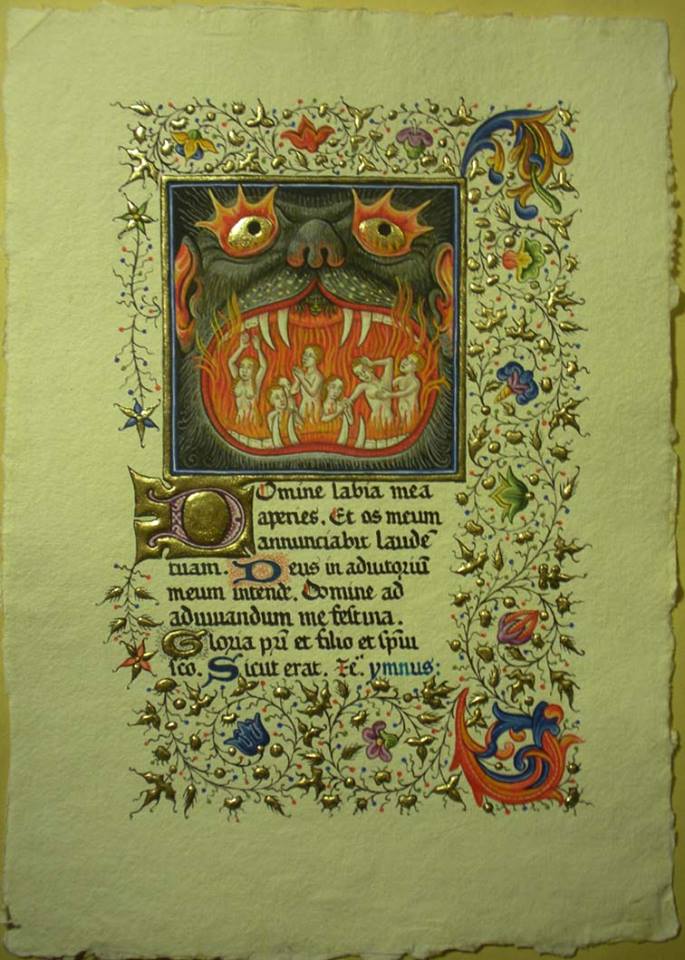 Domine labia mea
aperies. Et os meum
annunciabit laudē
tuam. Deus in adiutoriū
meum intende. Domine ad
adiuuandum me festina.
Gloria pri̅ et filio et spiui
sco. Sicut erat. Ꝛc̄. ymnus: